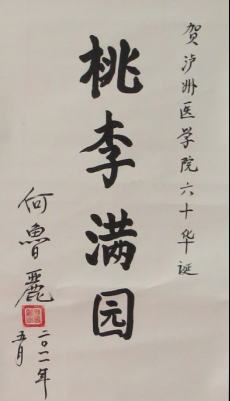 贺泸洲医学院六十华诞
桃李满园
何鲁丽
二〇一一年
五月